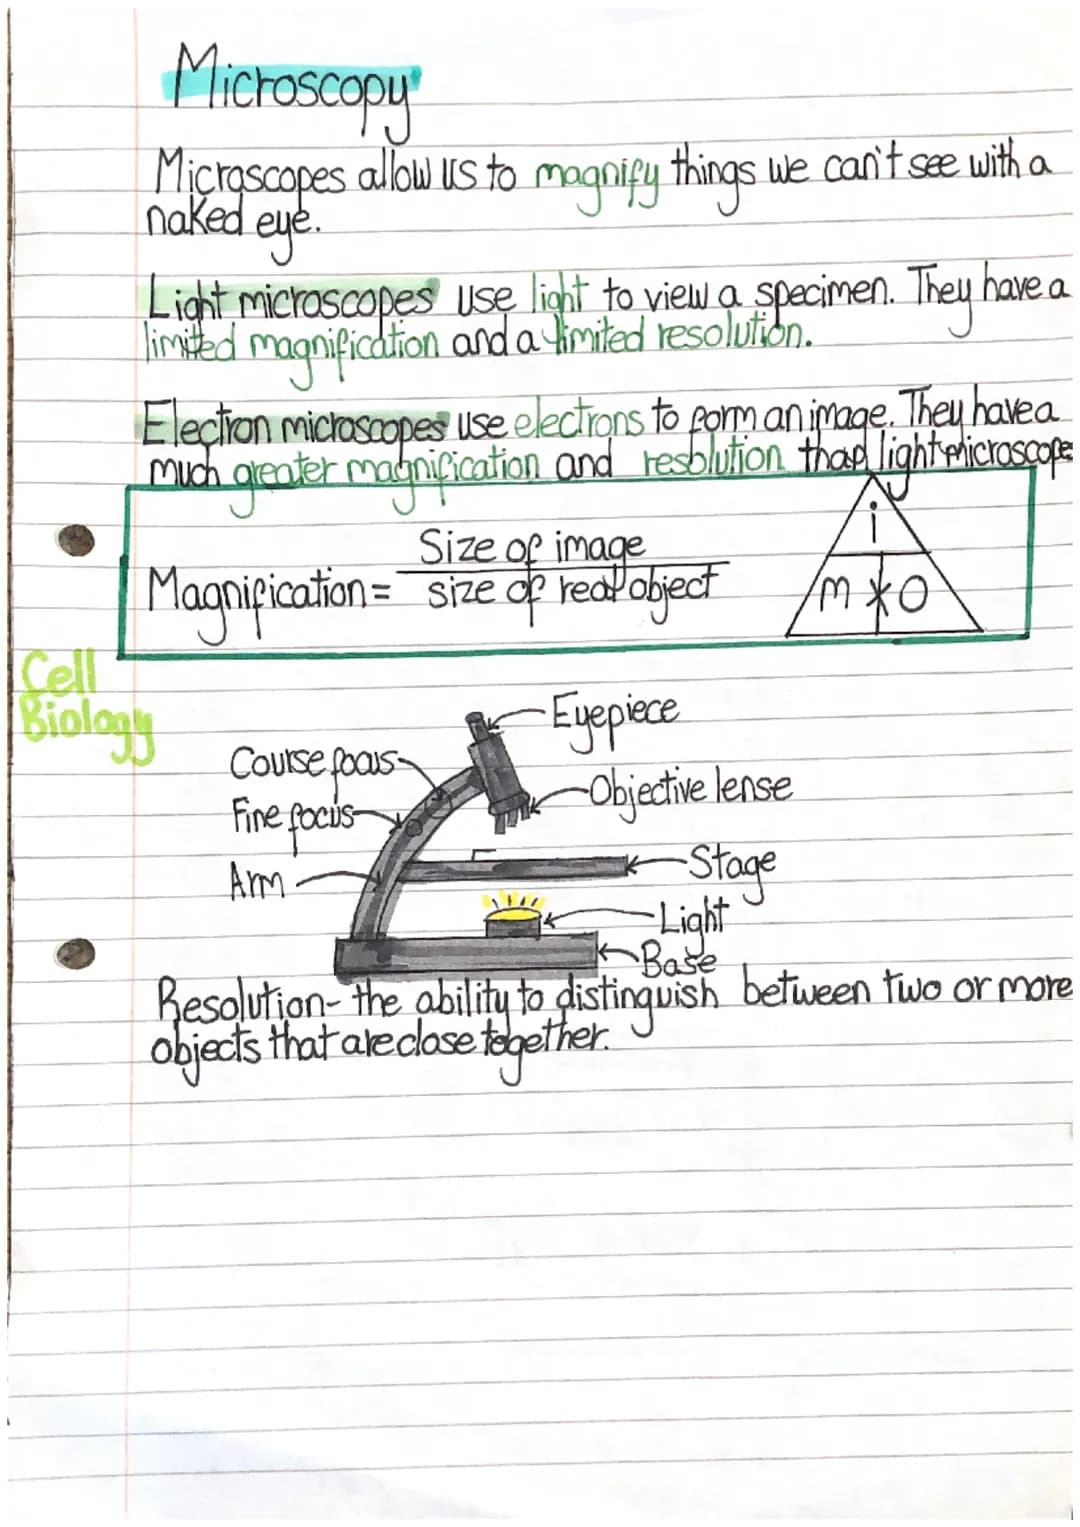 Microscopy
Microscopes allow us to magnify things we can't see with a
naked eye.
Light microscopes use light to view a specimen. They have a
limited magnification and a limited resolution.
Electron microscopes use electrons to form an image. They have a
much greater magnification and resolution than light microscope
Magnification = Size of image
size of real object
i
m x O
Cell
Biology
Eyepiece
Course focus
Objective lense
Fine focus
Stage
Arm
Light
Base
Resolution- the ability to distinguish between two or more
objects that are close together.